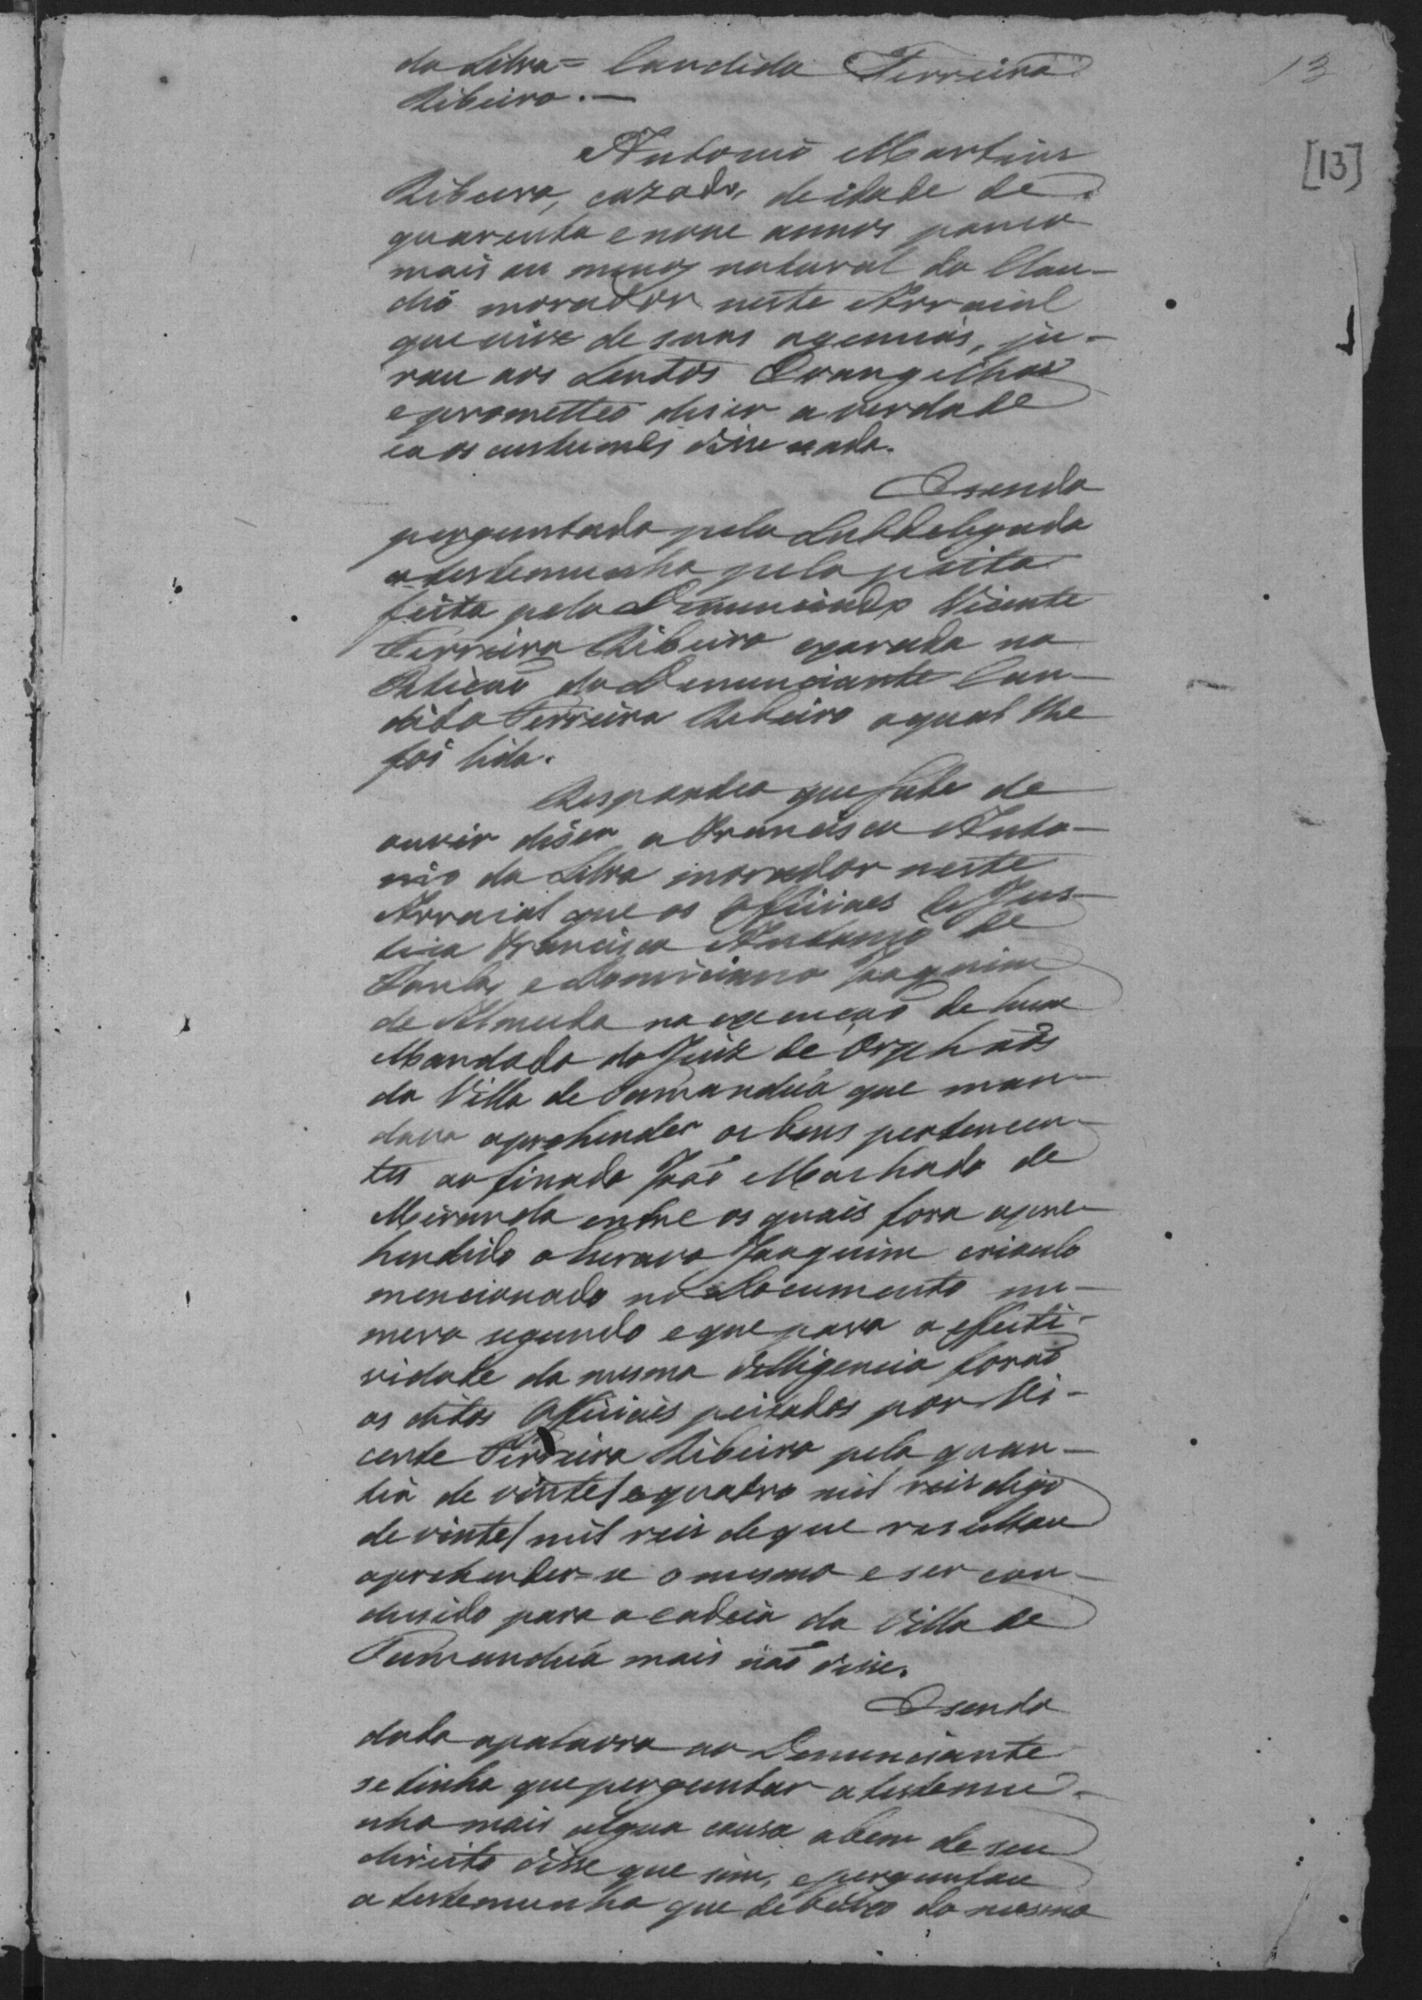 13
[13]
da Silva = Candido Ferreira
Ribeiro. —
Antonio Martins
Ribeiro, cazado, de idade de
quarenta e nove annos pouco
mais ou menos natural do Clau-
dio morador neste Arraial
que vive de suas agencias, ju-
rou aos Santos Evangelhos
e prometteo diser a verdade
e aos custumes disse nada.
E sendo
perguntado pelo Subdelegado
a testemunha pela peita
feita pelo Denunciado Vicente
Ferreira Ribeiro exarada na
Petição do Denunciante Can-
dido Ferreira Ribeiro a qual lhe
foi lida.
Respondeo que sabe de
ouvir diser a Francisco Anto-
nio da Silva morador neste
Arraial que os Officiaes de Jus-
tiça Francisco Antonio de
Paula, e Domiciano Joaquim
de Almeida na execução de hum
Mandado do Juiz de Orphãos
da Villa de Tamanduá que man-
dava aprehender os bens pertencen-
tes ao finado João Machado de
Miranda entre os quais fora apre-
hendido o escravo Joaquim crioulo
mencionado no Documento nu-
mero segundo e que para a effecti-
vidade da mesma delligencia forão
os ditos Officiaes peitados por Vi-
cente Ferreira Ribeiro pela quan-
tia de vinte e quatro mil reis digo
de vinte mil reis de que resultou
aprehender-se o mesmo e ser con-
dusido para a cadeia da Villa de
Tamanduá mais não disse.
E sendo
dada a palavra ao Denunciante
se tinha que perguntar a testemu-
nha mais algua cousa a bem de seu
direito disse que sim, e perguntou
a testemunha que debaixo do mesmo